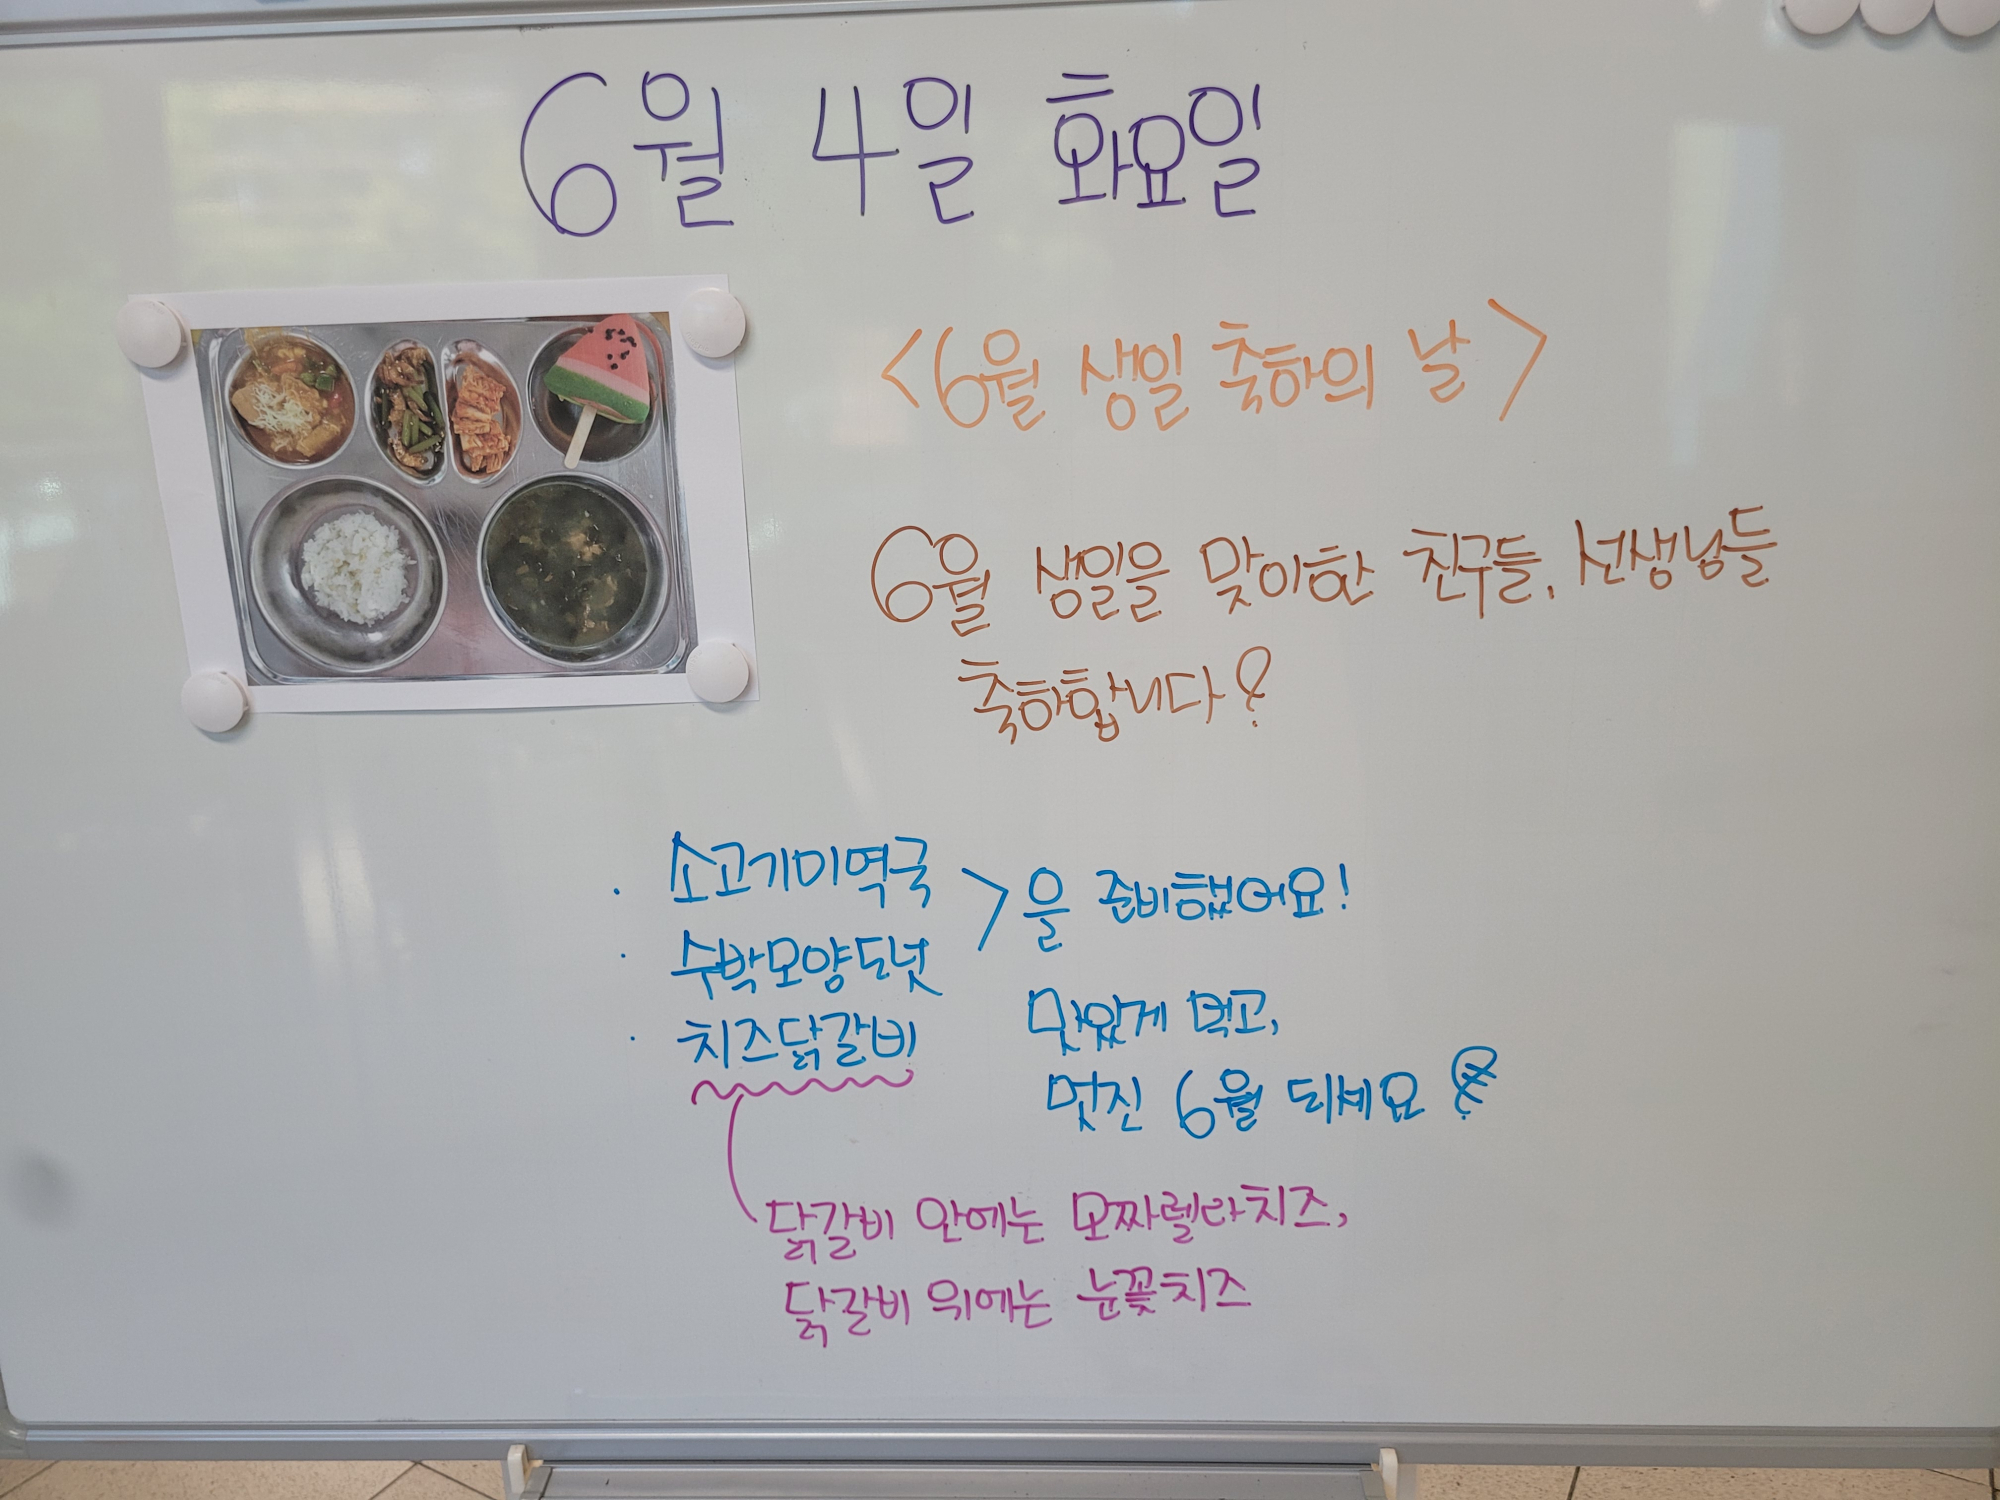 6월 4일 화요일
<6월 생일 축하의 날>
6월 생일을 맞이한 친구들, 선생님들
축하합니다!
· 소고기미역국
· 수박모양도넛
· 치즈닭갈비
>을 준비했어요!
맛있게 먹고,
멋진 6월 되세요!
닭갈비 안에는 모짜렐라치즈,
닭갈비 위에는 눈꽃치즈